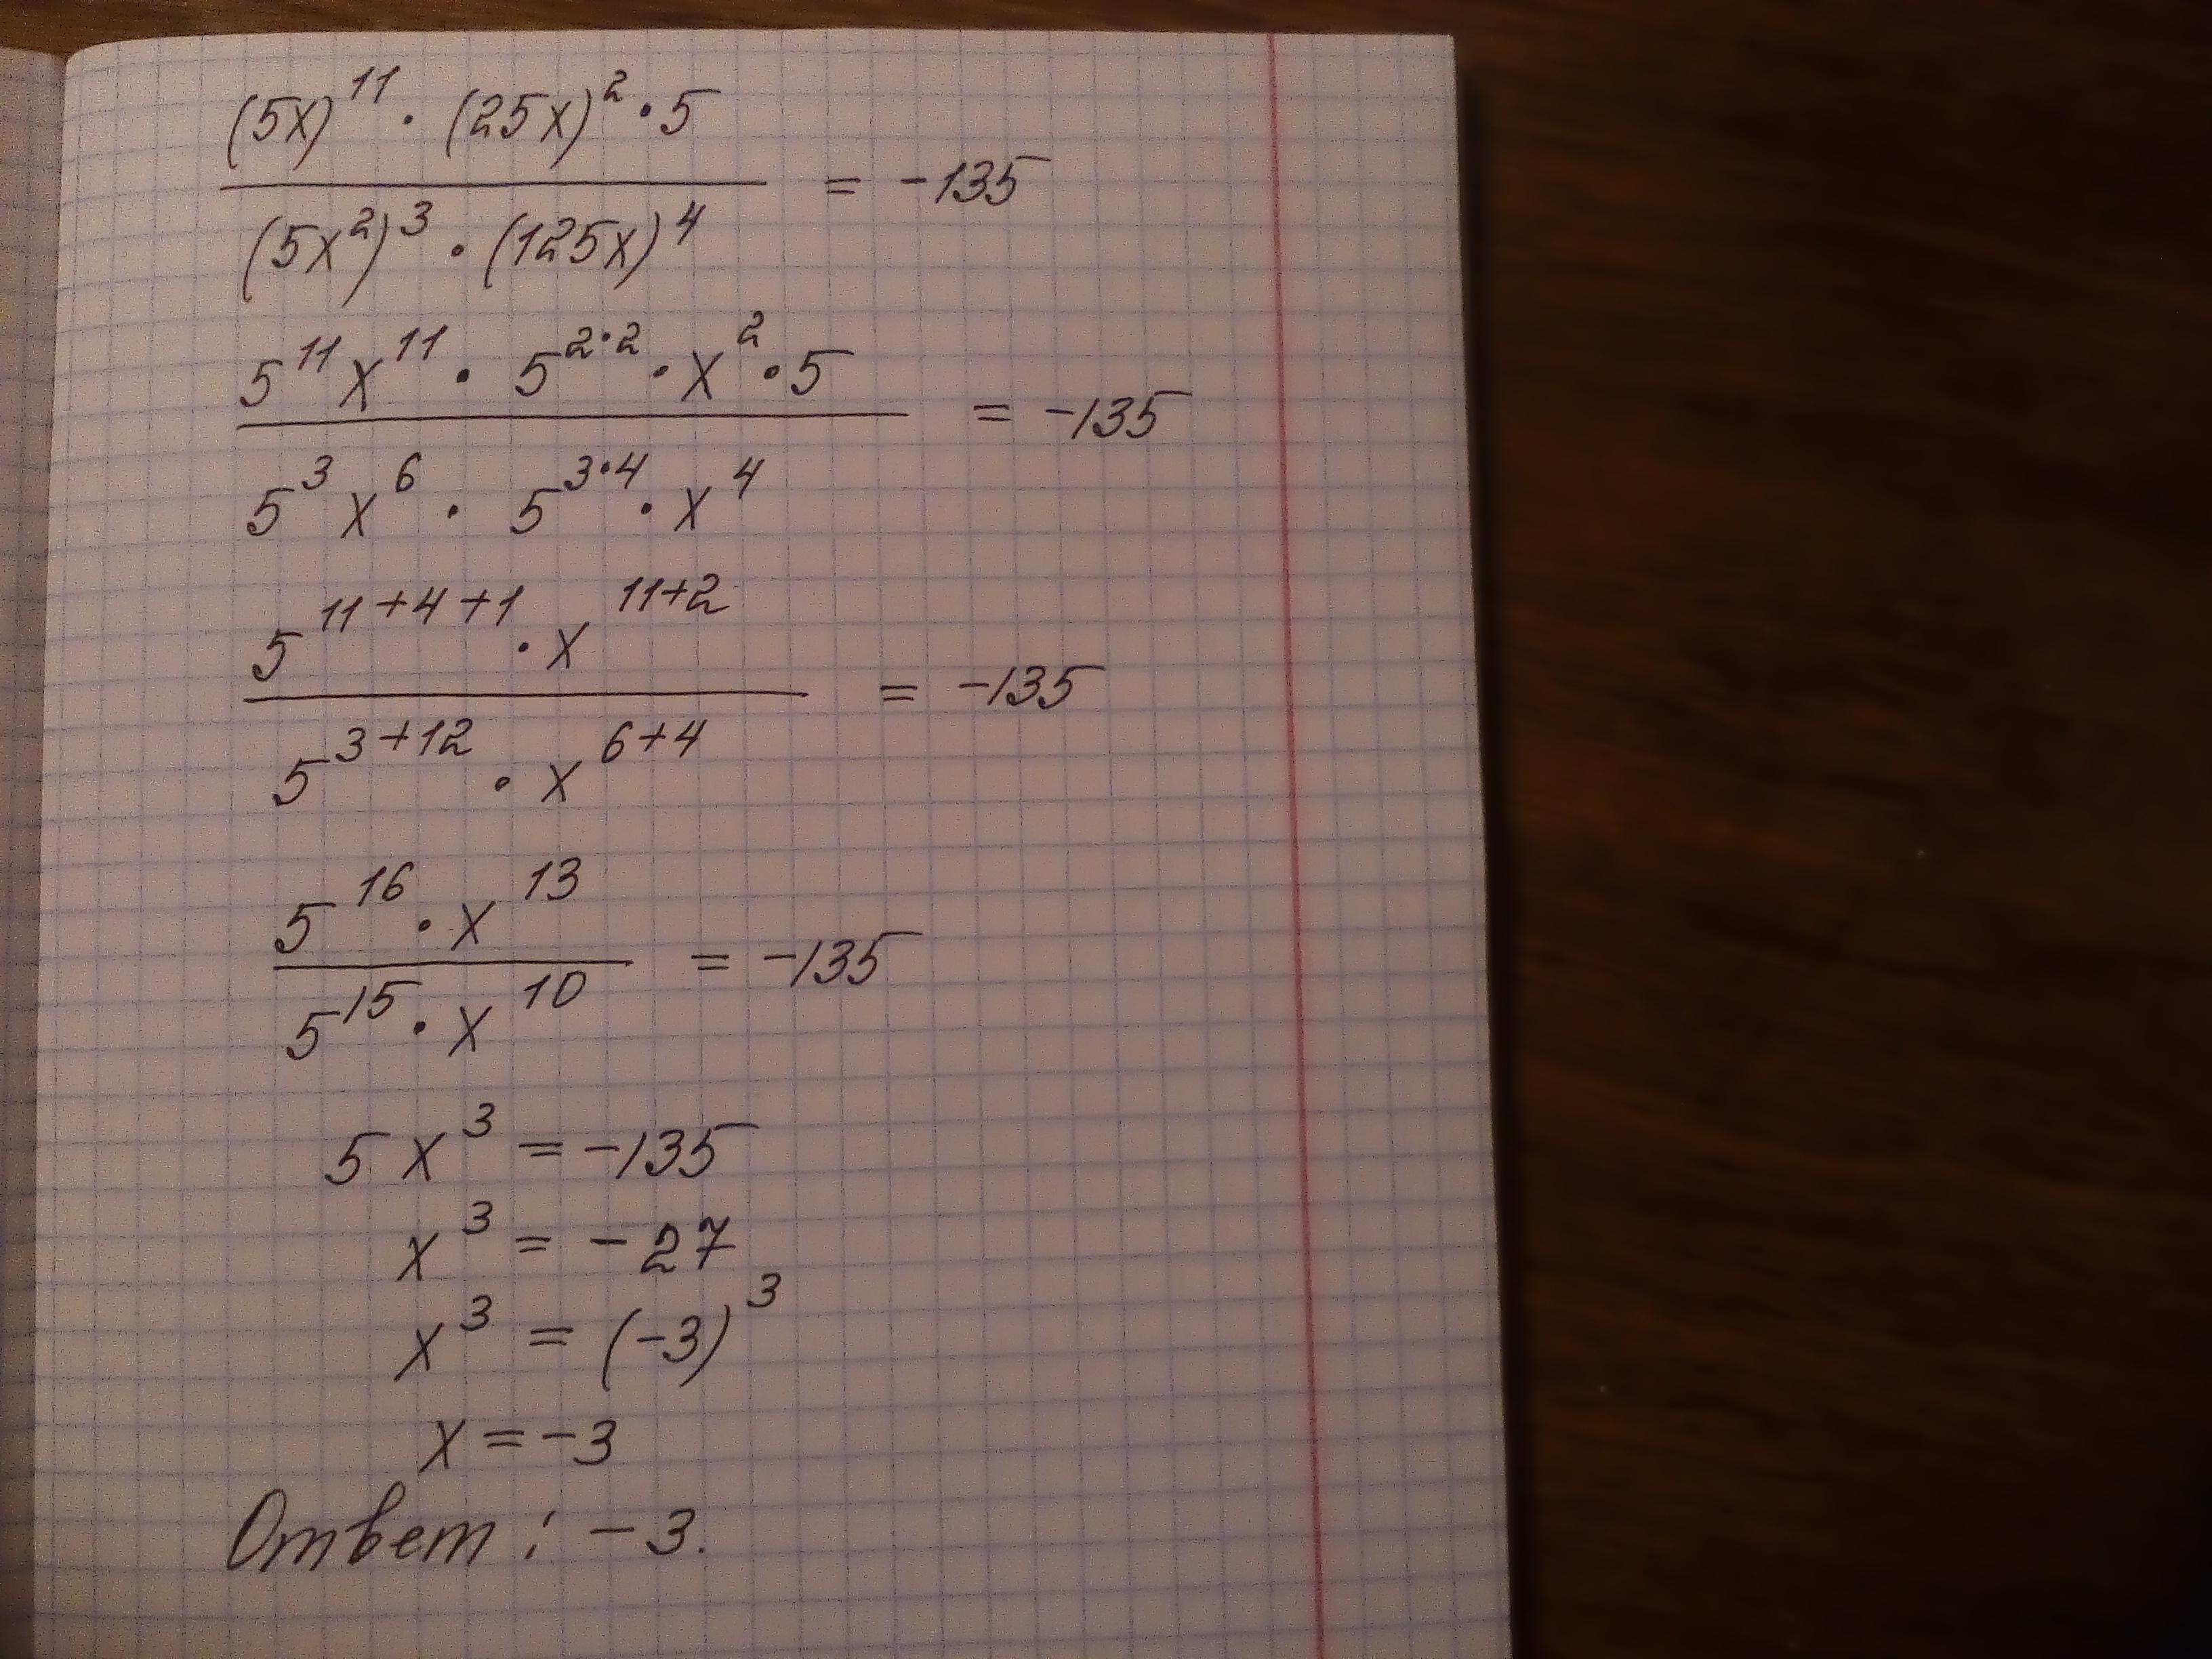 (5x)^11 · (25x)^2 · 5 / (5x^2)^3 · (125x)^4 = -135
5^11 x^11 · 5^(2·2) · x^2 · 5 / 5^3 x^6 · 5^(3·4) · x^4 = -135
5^(11+4+1) · x^(11+2) / 5^(3+12) · x^(6+4) = -135
5^16 · x^13 / 5^15 · x^10 = -135
5x^3 = -135
x^3 = -27
x^3 = (-3)^3
x = -3
Ответ: -3.